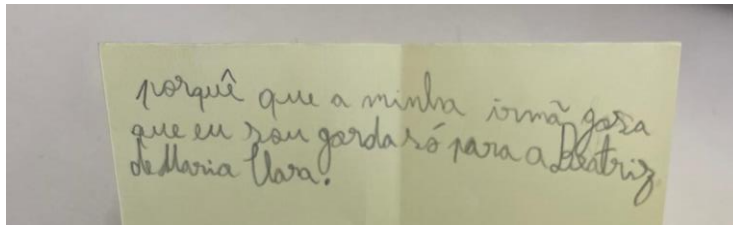 porquê que a minha irmã goza
que eu sou gorda só para a Beatriz
de Maria Clara.